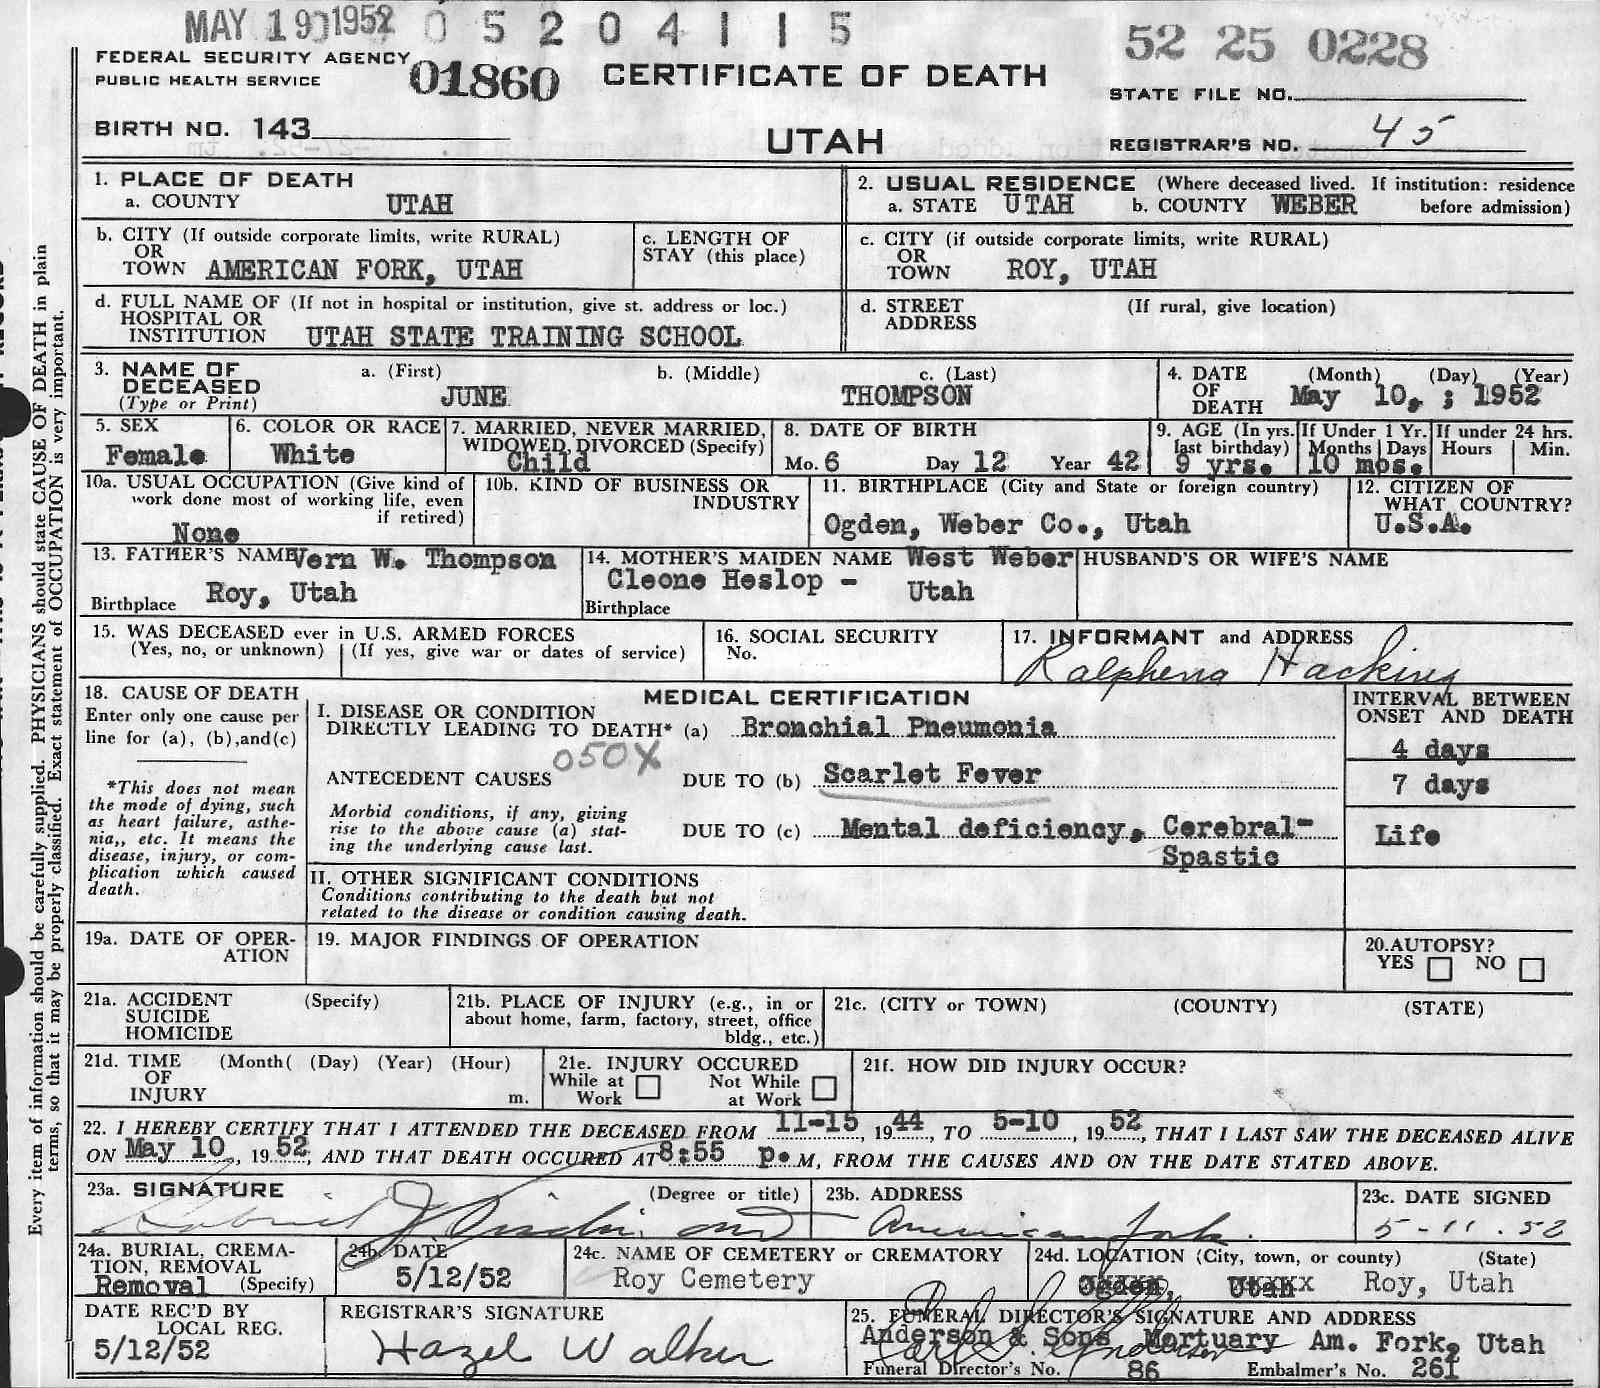 MAY 19 1952 0 5 2 0 4 1 1 5
52 25 0228
FEDERAL SECURITY AGENCY
PUBLIC HEALTH SERVICE
01860
CERTIFICATE OF DEATH
STATE FILE NO.
BIRTH NO. 143
UTAH
REGISTRAR'S NO. 45
1. PLACE OF DEATH
a. COUNTY UTAH
2. USUAL RESIDENCE (Where deceased lived. If institution: residence
a. STATE UTAH b. COUNTY WEBER before admission)
b. CITY (If outside corporate limits, write RURAL)
OR
TOWN AMERICAN FORK, UTAH
c. LENGTH OF
STAY (this place)
c. CITY (if outside corporate limits, write RURAL)
OR
TOWN ROY, UTAH
d. FULL NAME OF (If not in hospital or institution, give st. address or loc.)
HOSPITAL OR
INSTITUTION UTAH STATE TRAINING SCHOOL
d. STREET (If rural, give location)
ADDRESS
3. NAME OF a. (First) b. (Middle) c. (Last)
DECEASED
(Type or Print) JUNE THOMPSON
4. DATE (Month) (Day) (Year)
OF
DEATH May 10, ; 1952
5. SEX
Female
6. COLOR OR RACE
White
7. MARRIED, NEVER MARRIED,
WIDOWED, DIVORCED (Specify)
Child
8. DATE OF BIRTH
Mo. 6 Day 12 Year 42
9. AGE (In yrs.
last birthday)
9 yrs.
If Under 1 Yr.
Months Days
10 mos.
If under 24 hrs.
Hours Min.
10a. USUAL OCCUPATION (Give kind of
work done most of working life, even
if retired)
None
10b. KIND OF BUSINESS OR
INDUSTRY
11. BIRTHPLACE (City and State or foreign country)
Ogden, Weber Co., Utah
12. CITIZEN OF
WHAT COUNTRY?
U.S.A.
13. FATHER'S NAME Vern W. Thompson
Roy, Utah
Birthplace
14. MOTHER'S MAIDEN NAME West Weber
Cleone Heslop - Utah
Birthplace
HUSBAND'S OR WIFE'S NAME
15. WAS DECEASED ever in U.S. ARMED FORCES
(Yes, no, or unknown) (If yes, give war or dates of service)
16. SOCIAL SECURITY
No.
17. INFORMANT and ADDRESS
Ralphena Hacking
18. CAUSE OF DEATH
Enter only one cause per
line for (a), (b),and(c)
*This does not mean
the mode of dying, such
as heart failure, asthe-
nia,, etc. It means the
disease, injury, or com-
plication which caused
death.
MEDICAL CERTIFICATION
I. DISEASE OR CONDITION
DIRECTLY LEADING TO DEATH* (a) Bronchial Pneumonia
050X
ANTECEDENT CAUSES DUE TO (b) Scarlet Fever
Morbid conditions, if any, giving
rise to the above cause (a) stat-
ing the underlying cause last.
DUE TO (c) Mental deficiency, Cerebral-
Spastic
INTERVAL BETWEEN
ONSET AND DEATH
4 days
7 days
Life
II. OTHER SIGNIFICANT CONDITIONS
Conditions contributing to the death but not
related to the disease or condition causing death.
19a. DATE OF OPER-
ATION
19. MAJOR FINDINGS OF OPERATION
20.AUTOPSY?
YES NO
21a. ACCIDENT (Specify)
SUICIDE
HOMICIDE
21b. PLACE OF INJURY (e.g., in or
about home, farm, factory, street, office
bldg., etc.)
21c. (CITY or TOWN) (COUNTY) (STATE)
21d. TIME (Month( (Day) (Year) (Hour)
OF
INJURY m.
21e. INJURY OCCURED
While at Not While
Work at Work
21f. HOW DID INJURY OCCUR?
22. I HEREBY CERTIFY THAT I ATTENDED THE DECEASED FROM 11-15, 1944, TO 5-10, 1952, THAT I LAST SAW THE DECEASED ALIVE
ON May 10, 1952, AND THAT DEATH OCCURED AT 8:55 p. M, FROM THE CAUSES AND ON THE DATE STATED ABOVE.
23a. SIGNATURE (Degree or title)
23b. ADDRESS
American Fork.
23c. DATE SIGNED
5-11.52
24a. BURIAL, CREMA-
TION, REMOVAL
Removal (Specify)
24b. DATE
5/12/52
24c. NAME OF CEMETERY or CREMATORY
Roy Cemetery
24d. LOCATION (City, town, or county) (State)
Ogden, Utah Roy, Utah
DATE REC'D BY
LOCAL REG.
5/12/52
REGISTRAR'S SIGNATURE
Hazel Walker
25. FUNERAL DIRECTOR'S SIGNATURE AND ADDRESS
Anderson & Sons Mortuary Am. Fork, Utah
Funeral Director's No. 86 Embalmer's No. 261
Every item of information should be carefully supplied. PHYSICIANS should state CAUSE OF DEATH in plain
terms, so that it may be properly classified. Exact statement of OCCUPATION is very important.